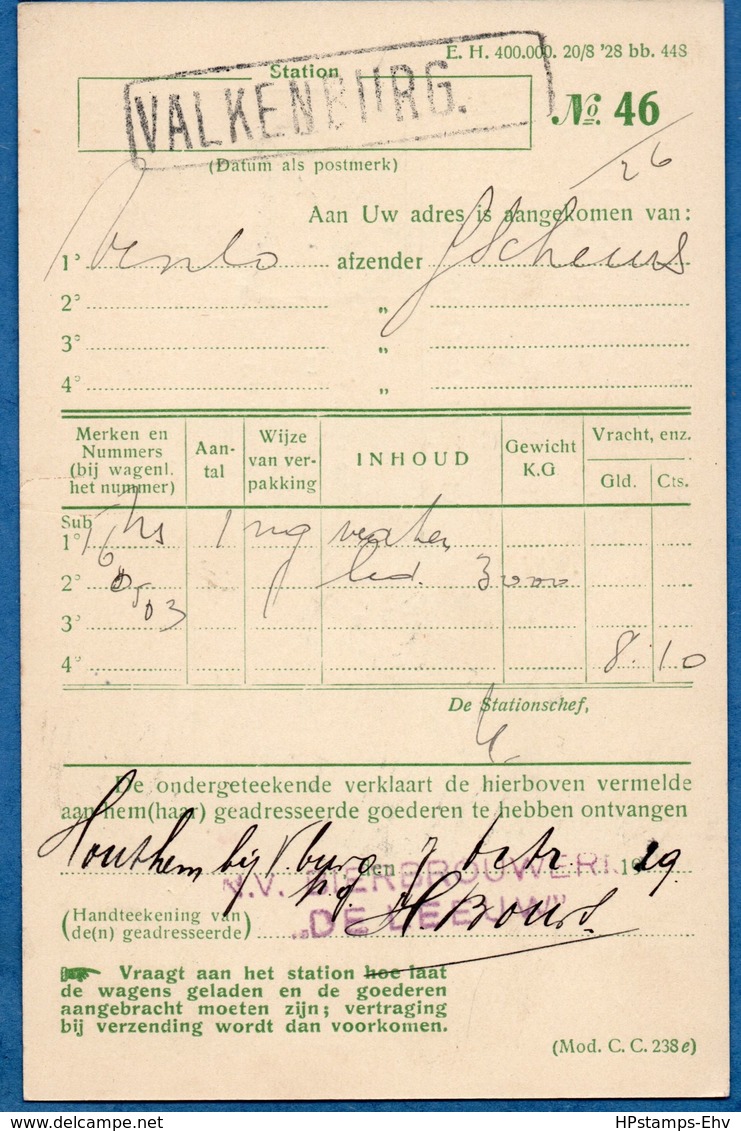 E. H. 400.000. 20/8 '28 bb. 448
Station
VALKENBURG.
No. 46
(Datum als postmerk)
26
Aan Uw adres is aangekomen van:
1° Venlo afzender
2° „
3° „
4° „
Merken en Nummers (bij wagenl. het nummer) Aan-tal Wijze van ver-pakking INHOUD Gewicht K.G Vracht, enz.
Gld. Cts.
Sub
1° 1
2° 3000
3°
4° 8.10
De Stationschef,
De ondergeteekende verklaart de hierboven vermelde
aan hem(haar) geadresseerde goederen te hebben ontvangen
Houthem bij Vburg den 7 Octr. 1929.
N.V. BIERBROUWERIJ
„DE LEEUW"
(Handteekening van
de(n) geadresseerde)
Vraagt aan het station hoe laat
de wagens geladen en de goederen
aangebracht moeten zijn; vertraging
bij verzending wordt dan voorkomen.
(Mod. C. C. 238e)
HPstamps-Ehv